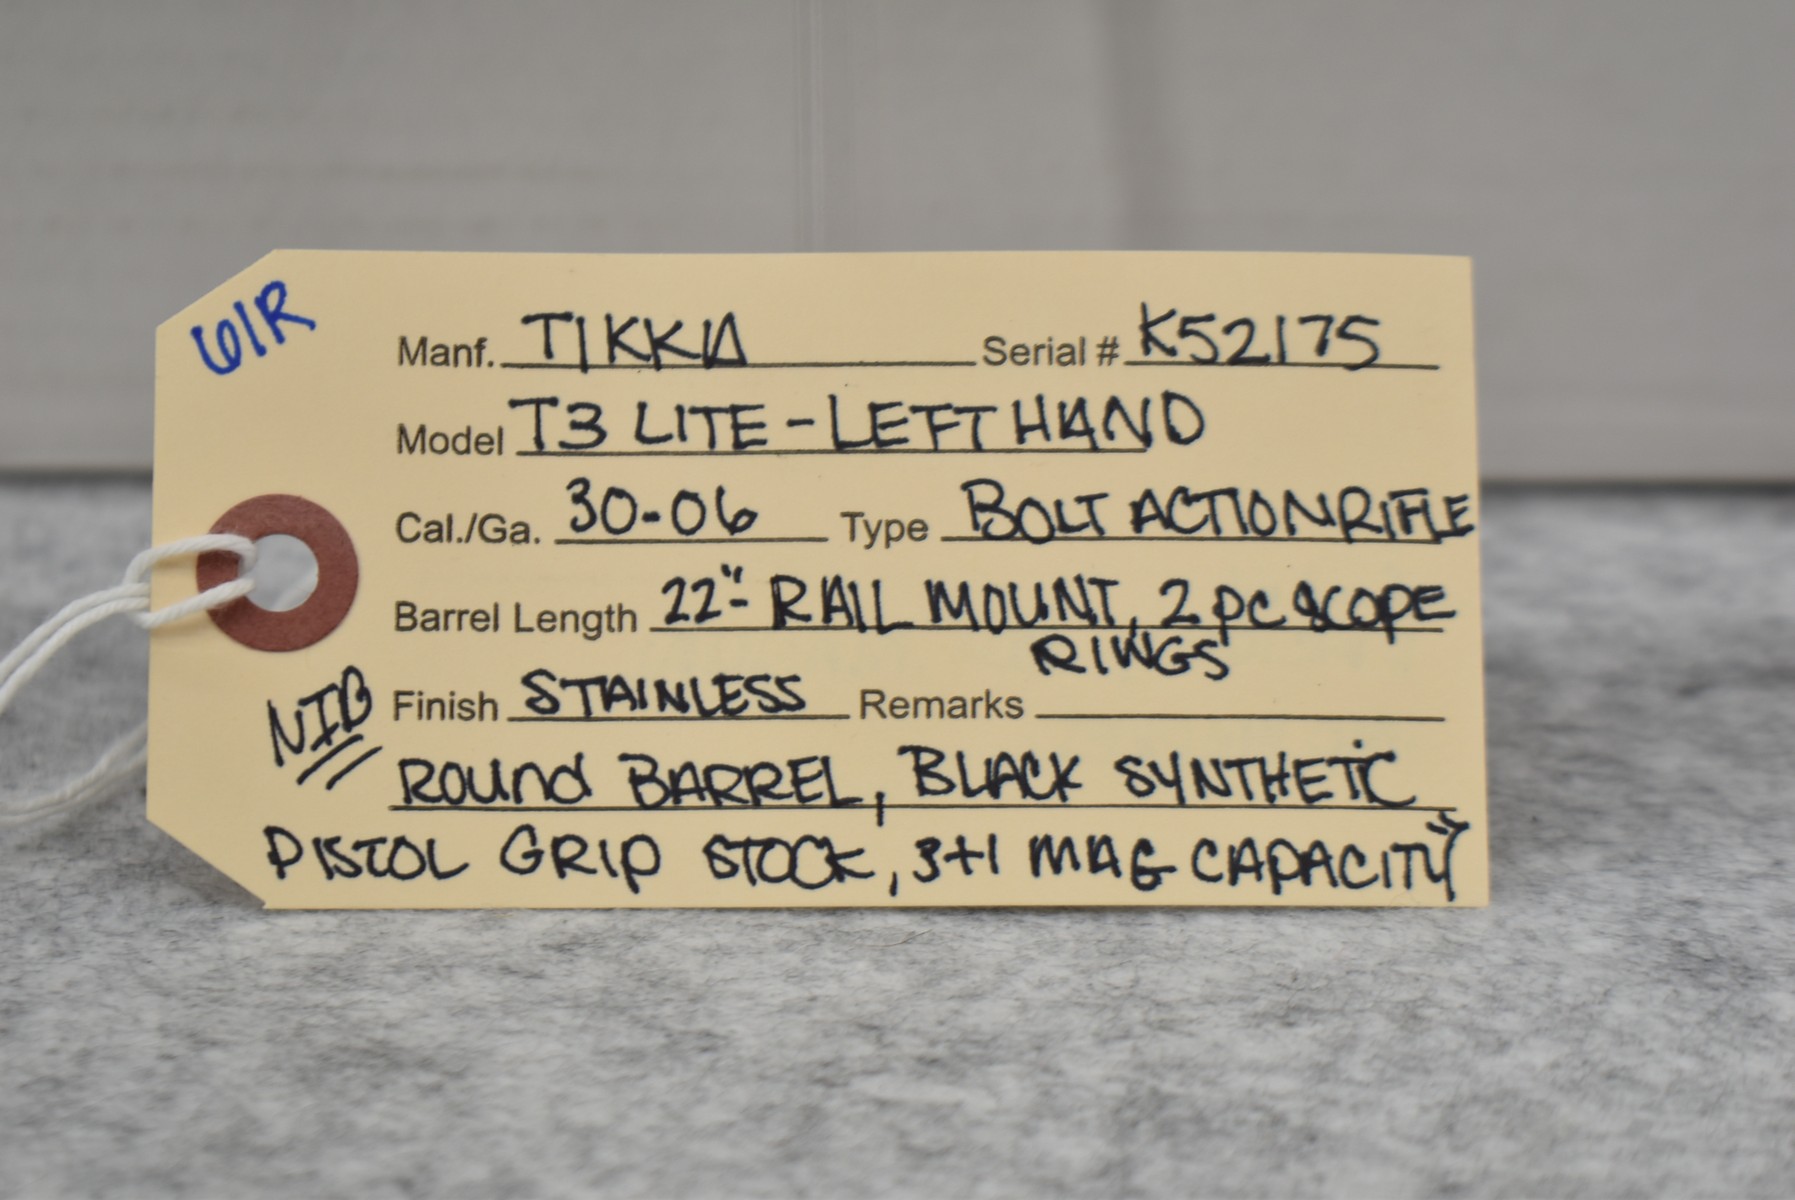 61R
Manf. TIKKA Serial # K52175
Model T3 LITE - LEFT HAND
Cal./Ga. 30-06 Type BOLT ACTION RIFLE
Barrel Length 22" - RAIL MOUNT, 2 pc SCOPE
RINGS
NIB
Finish STAINLESS Remarks
Round BARREL, BLACK SYNTHETIC
PISTOL GRIP STOCK, 3+1 MAG CAPACITY